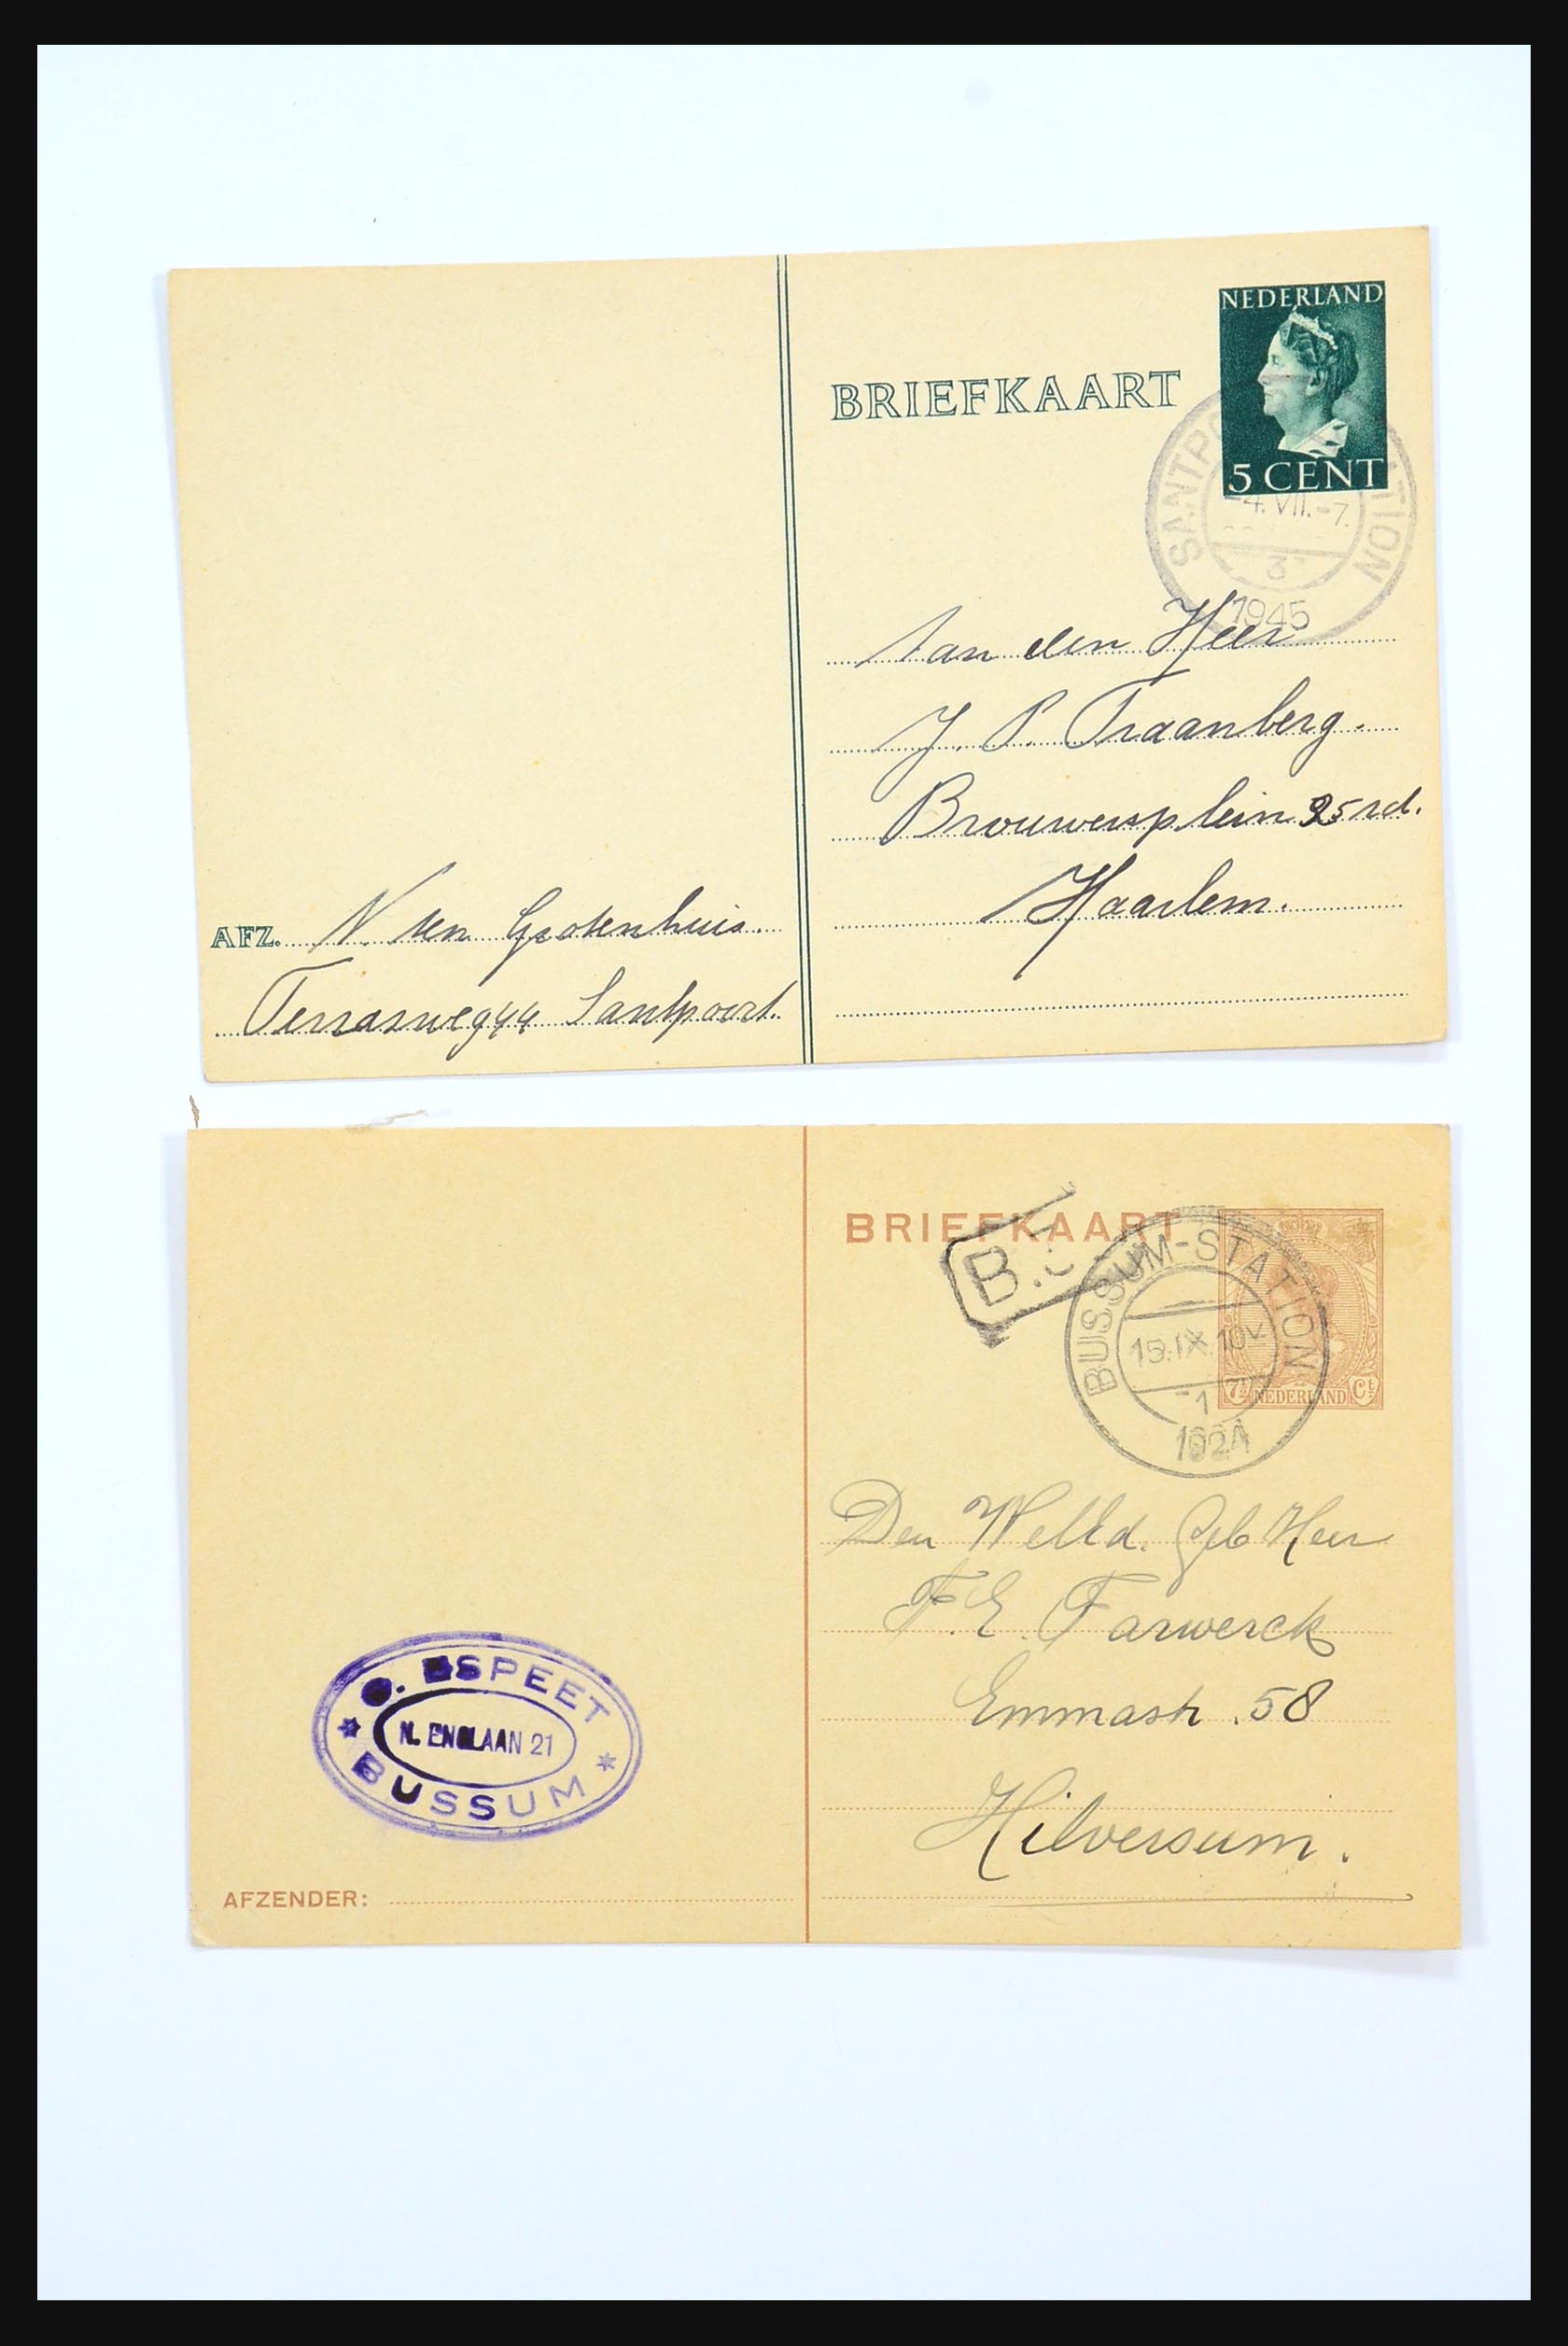 NEDERLAND
BRIEFKAART
5 CENT
4.VII.-7.
3
1945
Aan den Heer
J. P. Traanberg.
Brouwersplein 25 rd.
Haarlem.
AFZ. N. ten Grotenhuis.
Terrasweg 44 Santpoort.
BRIEFKAART
B.
BUSSUM-STATION
15.IX.10V
1
1924
7½ NEDERLAND Ct
Den WelEd. Geb Heer
F. E. Farwerck
Emmastr. 58
Hilversum.
ESPEET
N. ENGLAAN 21
BUSSUM
AFZENDER: